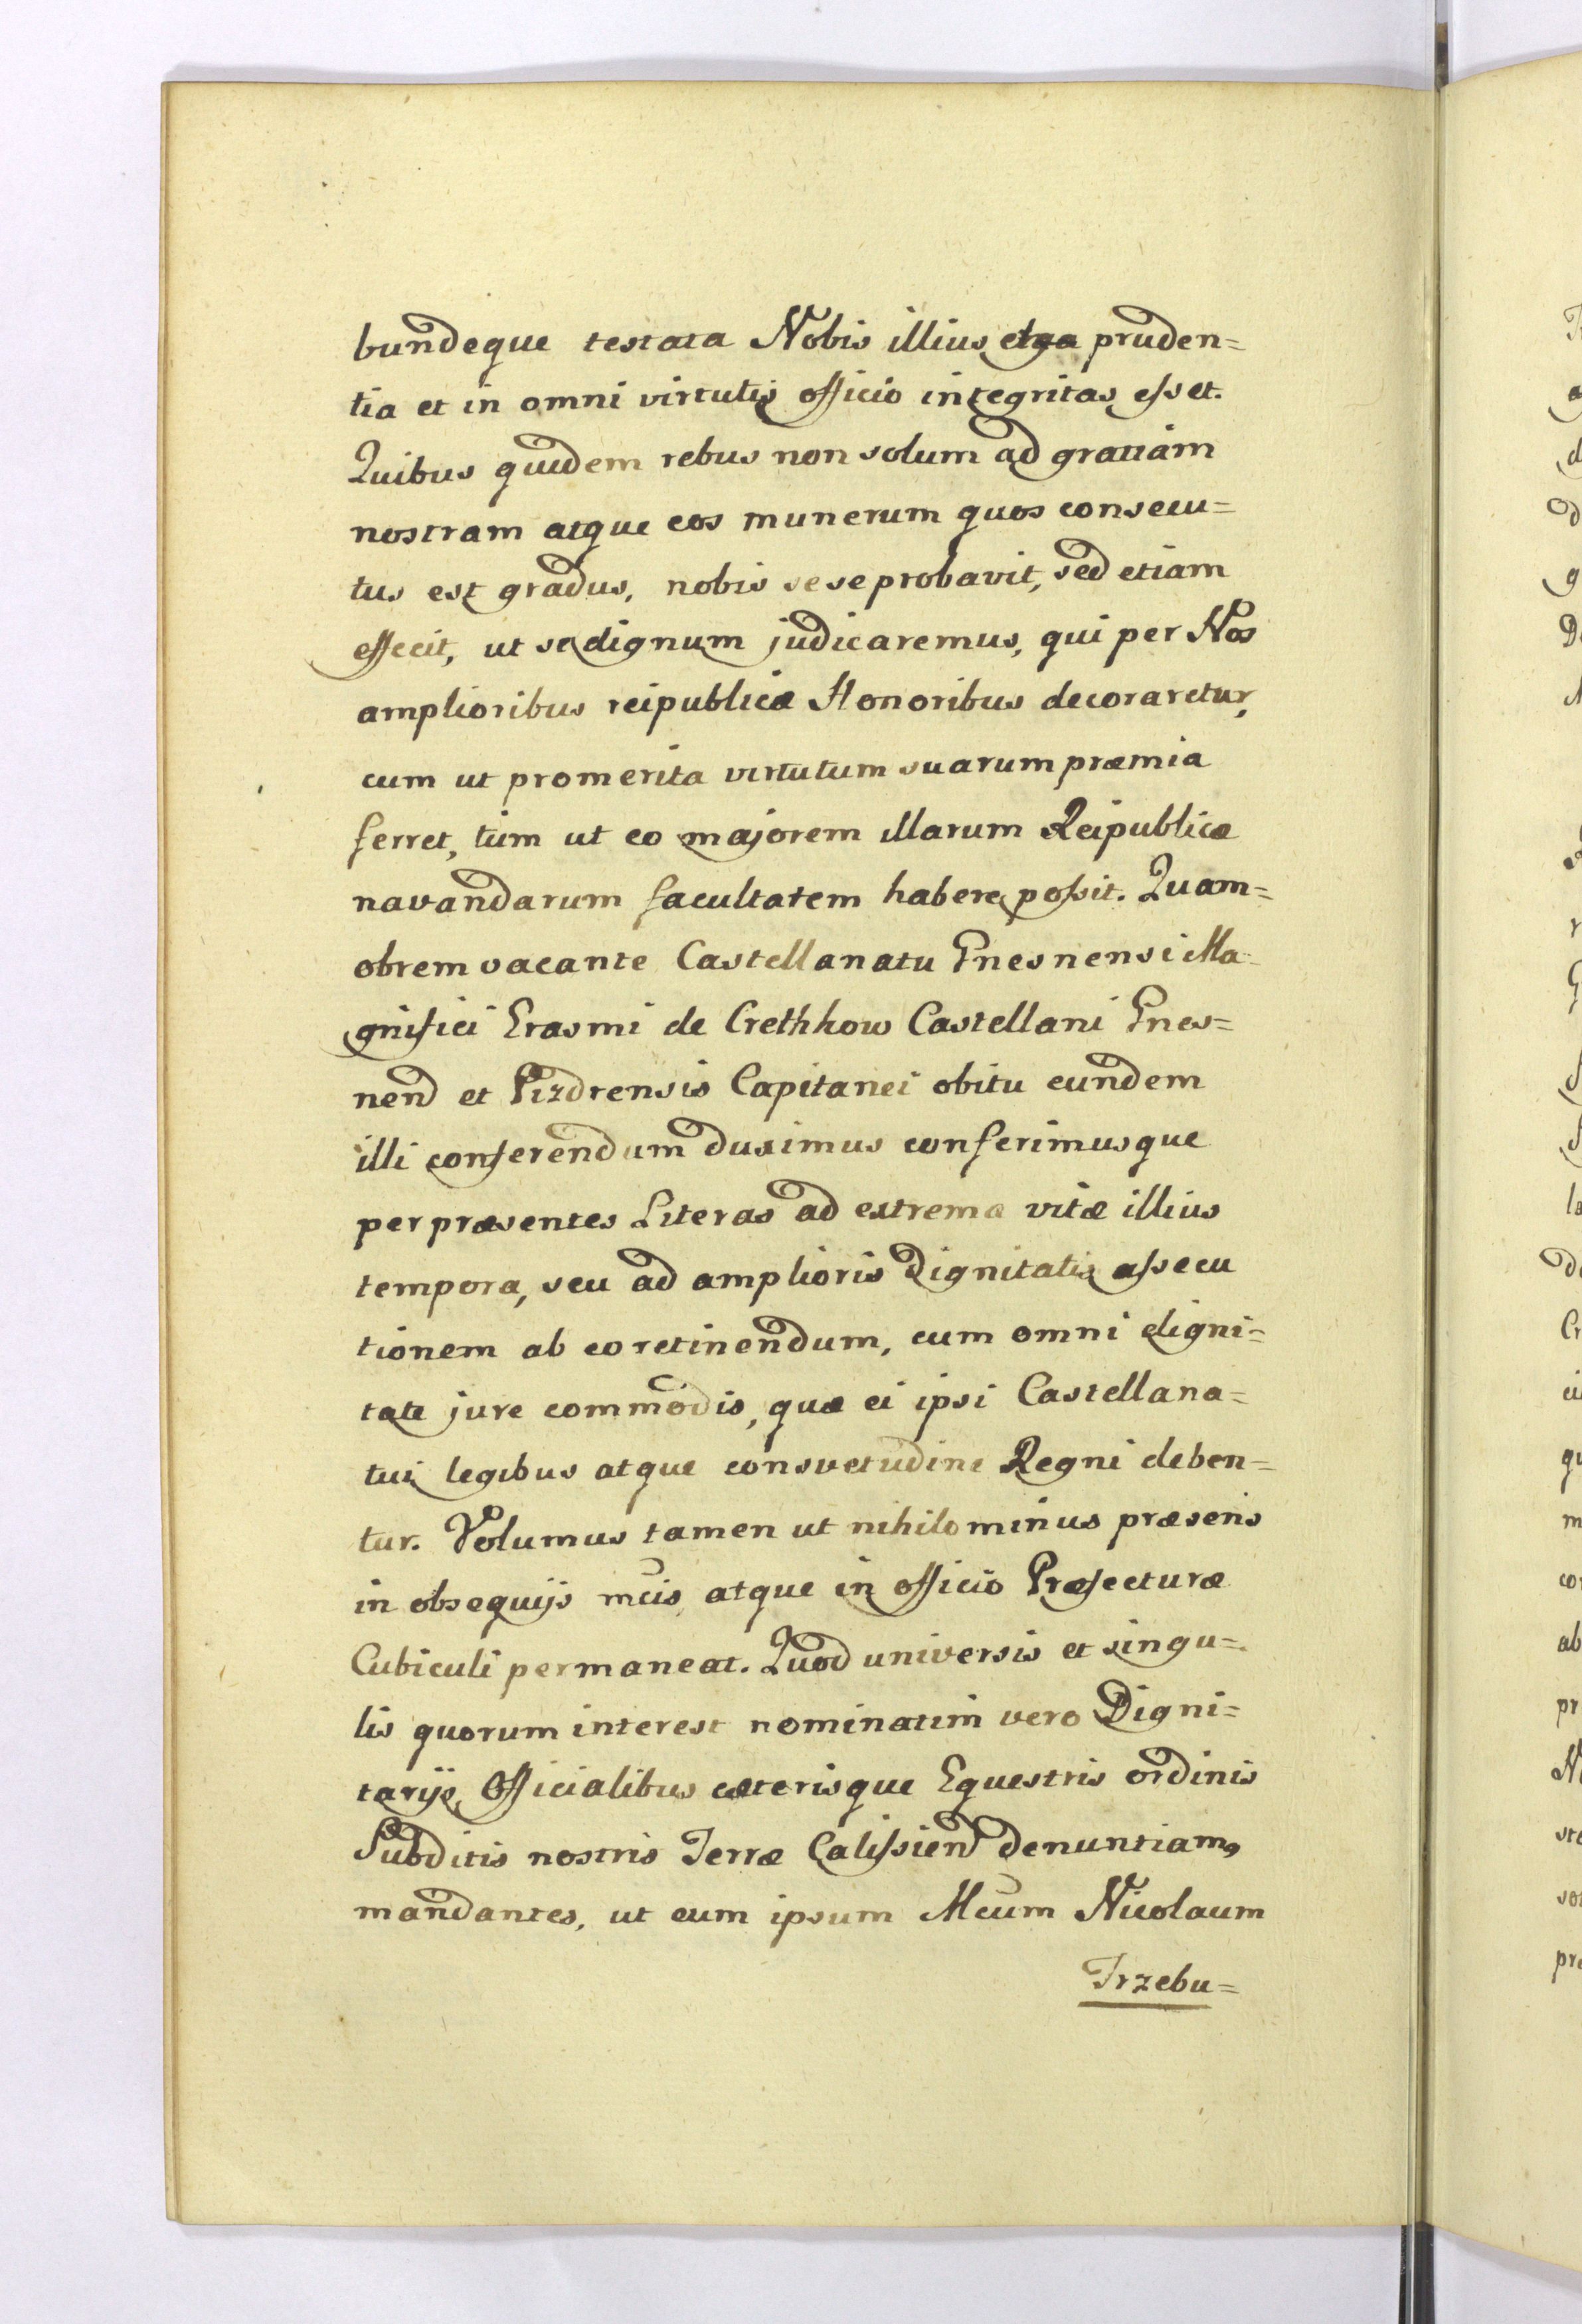 bundeque testata Nobis illius pruden=
tia et in omni virtutis officio integritas esset.
Quibus quidem rebus non solum ad gratiam
nostram atque eos munerum quos consecu=
tus est gradus, nobis sese probavit, sed etiam
effecit, ut se dignum judicaremus, qui per Nos
amplioribus reipublicæ Honoribus decoraretur,
cum ut promerita virtutum suarum præmia
ferret, tum ut eo majorem illarum Reipublicæ
navandarum facultatem habere possit. Quam=
obrem vacante Castellanatu Gnesnensi Ma=
gnifici Erasmi de Crethkow Castellani Gnes=
nend et Pizdrensis Capitanei obitu eundem
illi conferendum duximus conferimusque
per præsentes Literas ad extrema vitæ illius
tempora, seu ad amplioris Dignitatis assecu
tionem ab eo retinendum, cum omni digni=
tate jure commodis, quæ ei ipsi Castellana=
tui legibus atque consvetudine Regni deben=
tur. Volumus tamen ut nihilominus præsens
in obsequijs nris atque in officio Præfecturæ
Cubiculi permaneat. Quod universis et singu=
lis quorum interest nominatim vero Digni=
tarijs, Officialibus cæterisque Equestris ordinis
Subditis nostris Terræ Calissiend denuntiam9
mandantes, ut eum ipsum Mcum Nicolaum
Trzebu=